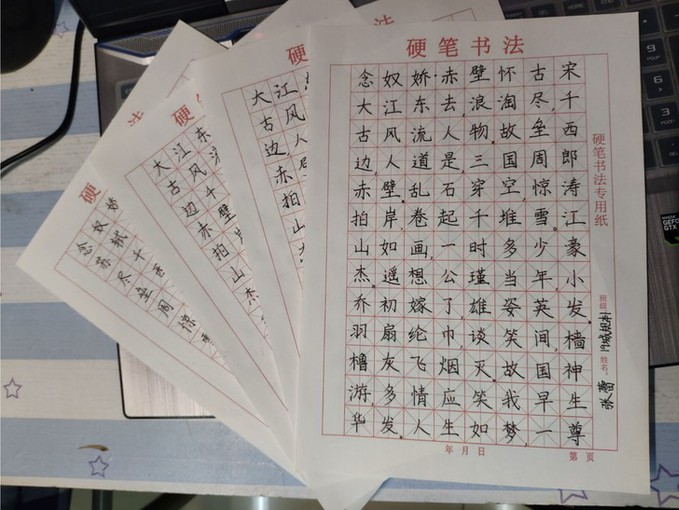 硬笔书法
念奴娇·赤壁怀古宋
大江东去,浪淘尽,千
古风流人物.故垒西
边,人道是,三国周郎
赤壁.乱石穿空,惊涛
拍岸,卷起千堆雪.江
山如画,一时多少豪
杰.遥想公瑾当年,小
乔初嫁了,雄姿英发.
羽扇纶巾,谈笑间,樯
橹灰飞烟灭.故国神
游,多情应笑我早生
华发.人生如梦,一尊
年 月 日
第 页
硬笔书法专用纸
班级:
姓名:
张蕾
硬
大江
古风
边,人
赤壁
拍
山
硬
大江东
古风
边千
赤壁
拍岸
山
杰
硬
念奴娇
苏轼
尽千
垒
周
惊
法
GEFORCE
GTX